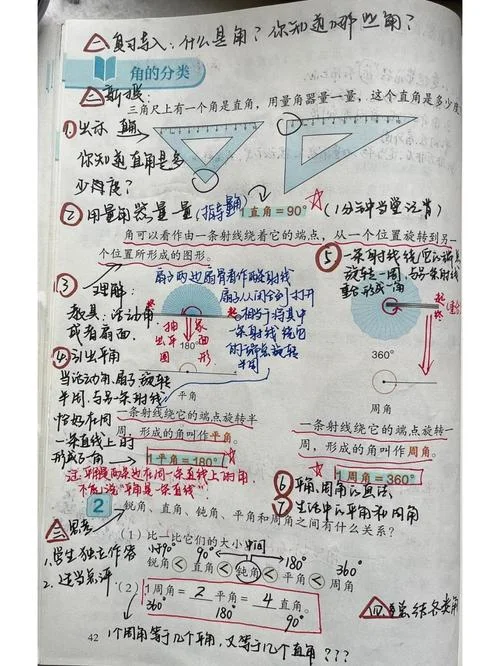 一 复习导入:什么是角?你知道哪些角?
角的分类
二 新授:
三角尺上有一个角是直角,用量角器量一量,这个直角是多少度?
① 出示 直角
你知道直角是多
少度?
② 用量角器量一量(指导量角) 1直角=90° (1分钟当堂记背)
角可以看作由一条射线绕着它的端点,从一个位置旋转到另一
个位置所形成的图形。
③ 一理解:
教具:活动角
或者扇面.
扇子的边扇骨看作两条射线
扇子从闭合到打开
相当于将其中
一条射线绕它
的端点旋转
半周
抽象
出平面
图形
180°
平角
④ 引出平角
当活动角、扇子旋转
半周.与另一条射线
恰好在同
一条直线上时
形成了角
一条射线绕它的端点旋转半
周,形成的角叫作平角。
1平角=180°
注:平角是两条边在同一条直线上的角
不能说“平角是一条直线”
⑤ 一条射线绕它的端点
旋转一周,与另一条射线
重合形成角
起
终
360°
周角
一条射线绕它的端点旋转一
周,形成的角叫作周角。
1周角=360°
⑥ 平角、周角的画法
⑦ 生活中的平角和周角
2 锐角、直角、钝角、平角和周角之间有什么关系?
三 思考
1、学生独立作答
2、适当点评.
(1)比一比它们的大小
小于90° 90° 中间 180° 360°
锐角<直角<钝角<平角<周角
(2) 1周角=2平角=4直角
360° 180° 90°
四 总结各类角
42
1个周角等于几个平角,又等于几个直角???